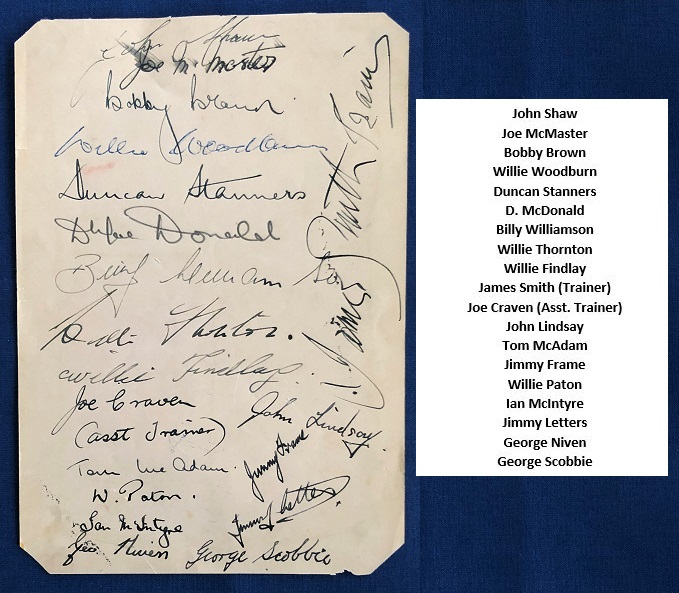 John Shaw
Joe McMaster
Bobby Brown.
Willie Woodburn
Duncan Stanners
Donald
Billy Williamson
Willie Thornton.
Willie Findlay.
James Smith Trainer
Joe Craven
(asst Trainer)
John Lindsay.
Tom McAdam.
Jimmy Frame
W. Paton.
Ian McIntyre
Jimmy Letters
Geo Niven
George Scobbie
John Shaw
Joe McMaster
Bobby Brown
Willie Woodburn
Duncan Stanners
D. McDonald
Billy Williamson
Willie Thornton
Willie Findlay
James Smith (Trainer)
Joe Craven (Asst. Trainer)
John Lindsay
Tom McAdam
Jimmy Frame
Willie Paton
Ian McIntyre
Jimmy Letters
George Niven
George Scobbie